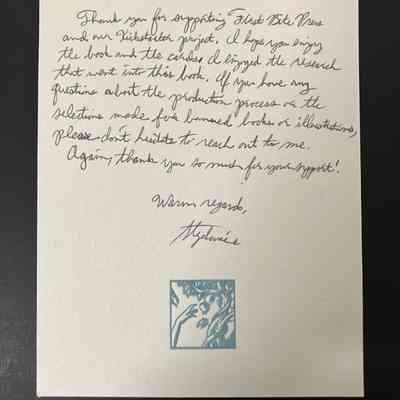 Thank you for supporting First Bite Press
and our Kickstarter project. I hope you enjoy
the book and the cards. I enjoyed the research
that went into this book. If you have any
questions about the production process or the
selections made for banned books or illustrations,
please don't hesitate to reach out to me.
Again, thank you so much for your support!
Warm regards,
Stephanie